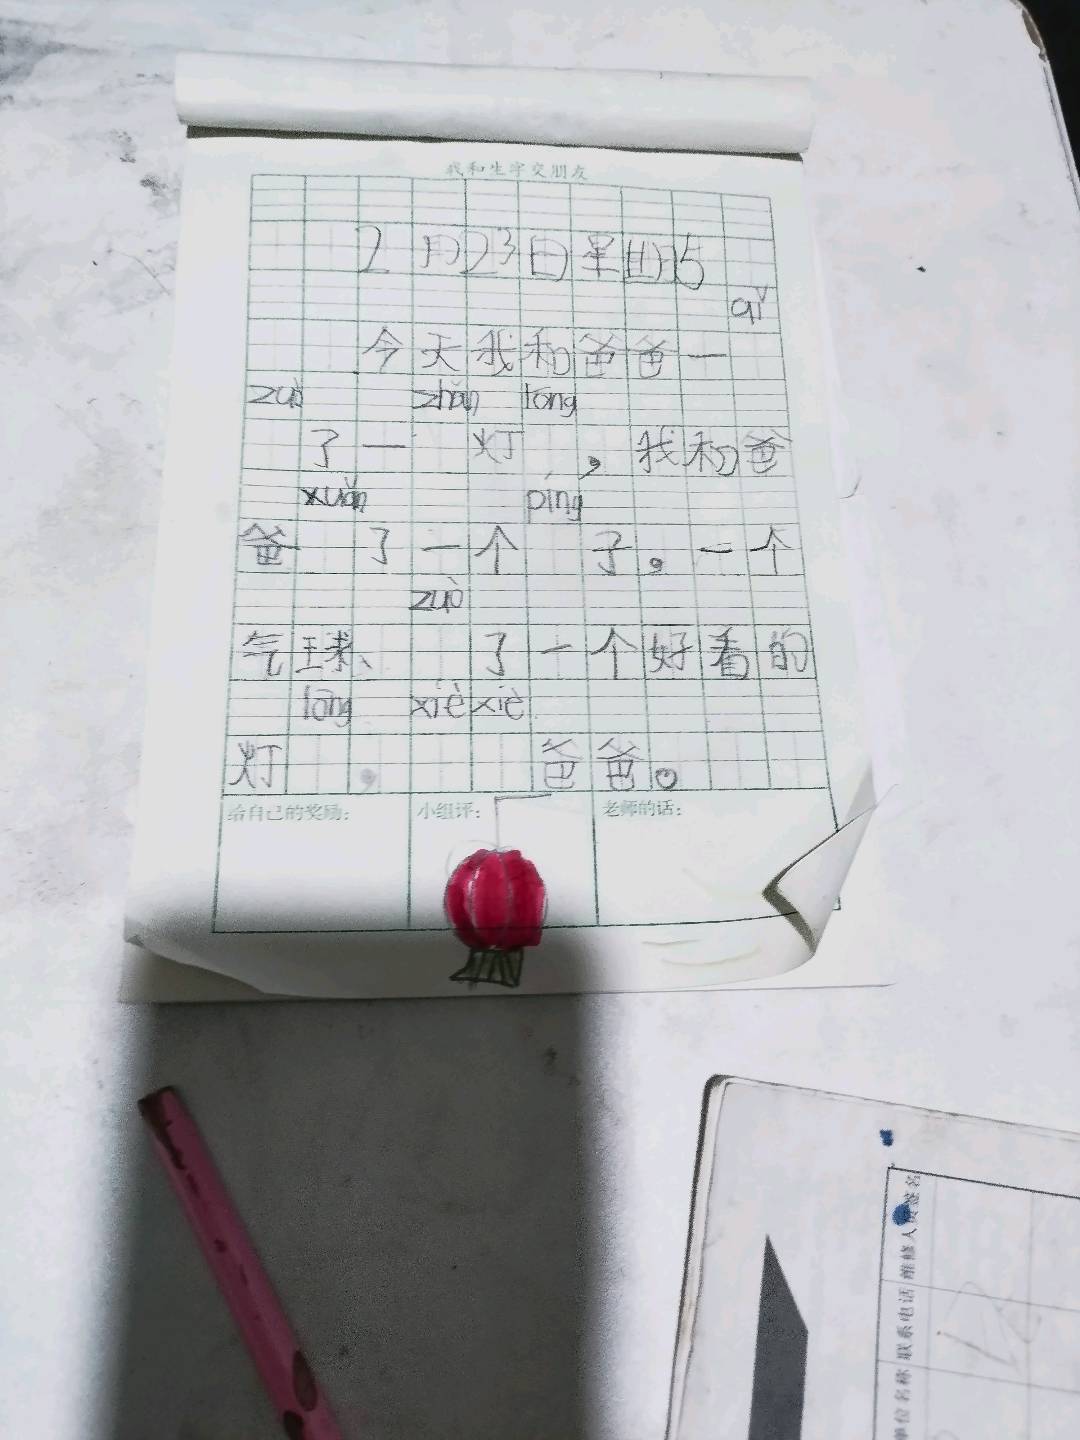 我和生字交朋友
2月23日星期5
qǐ
今天我和爸爸一
zuò zhǎn lóng
了一 灯，我和爸
xuǎn píng
爸 了一个 子。一个
zuò
气球、 了一个好看的
lóng xiè xiè
灯 。 爸爸。
给自己的奖励： 小组评： 老师的话：
维修人员签名
联系电话
单位名称